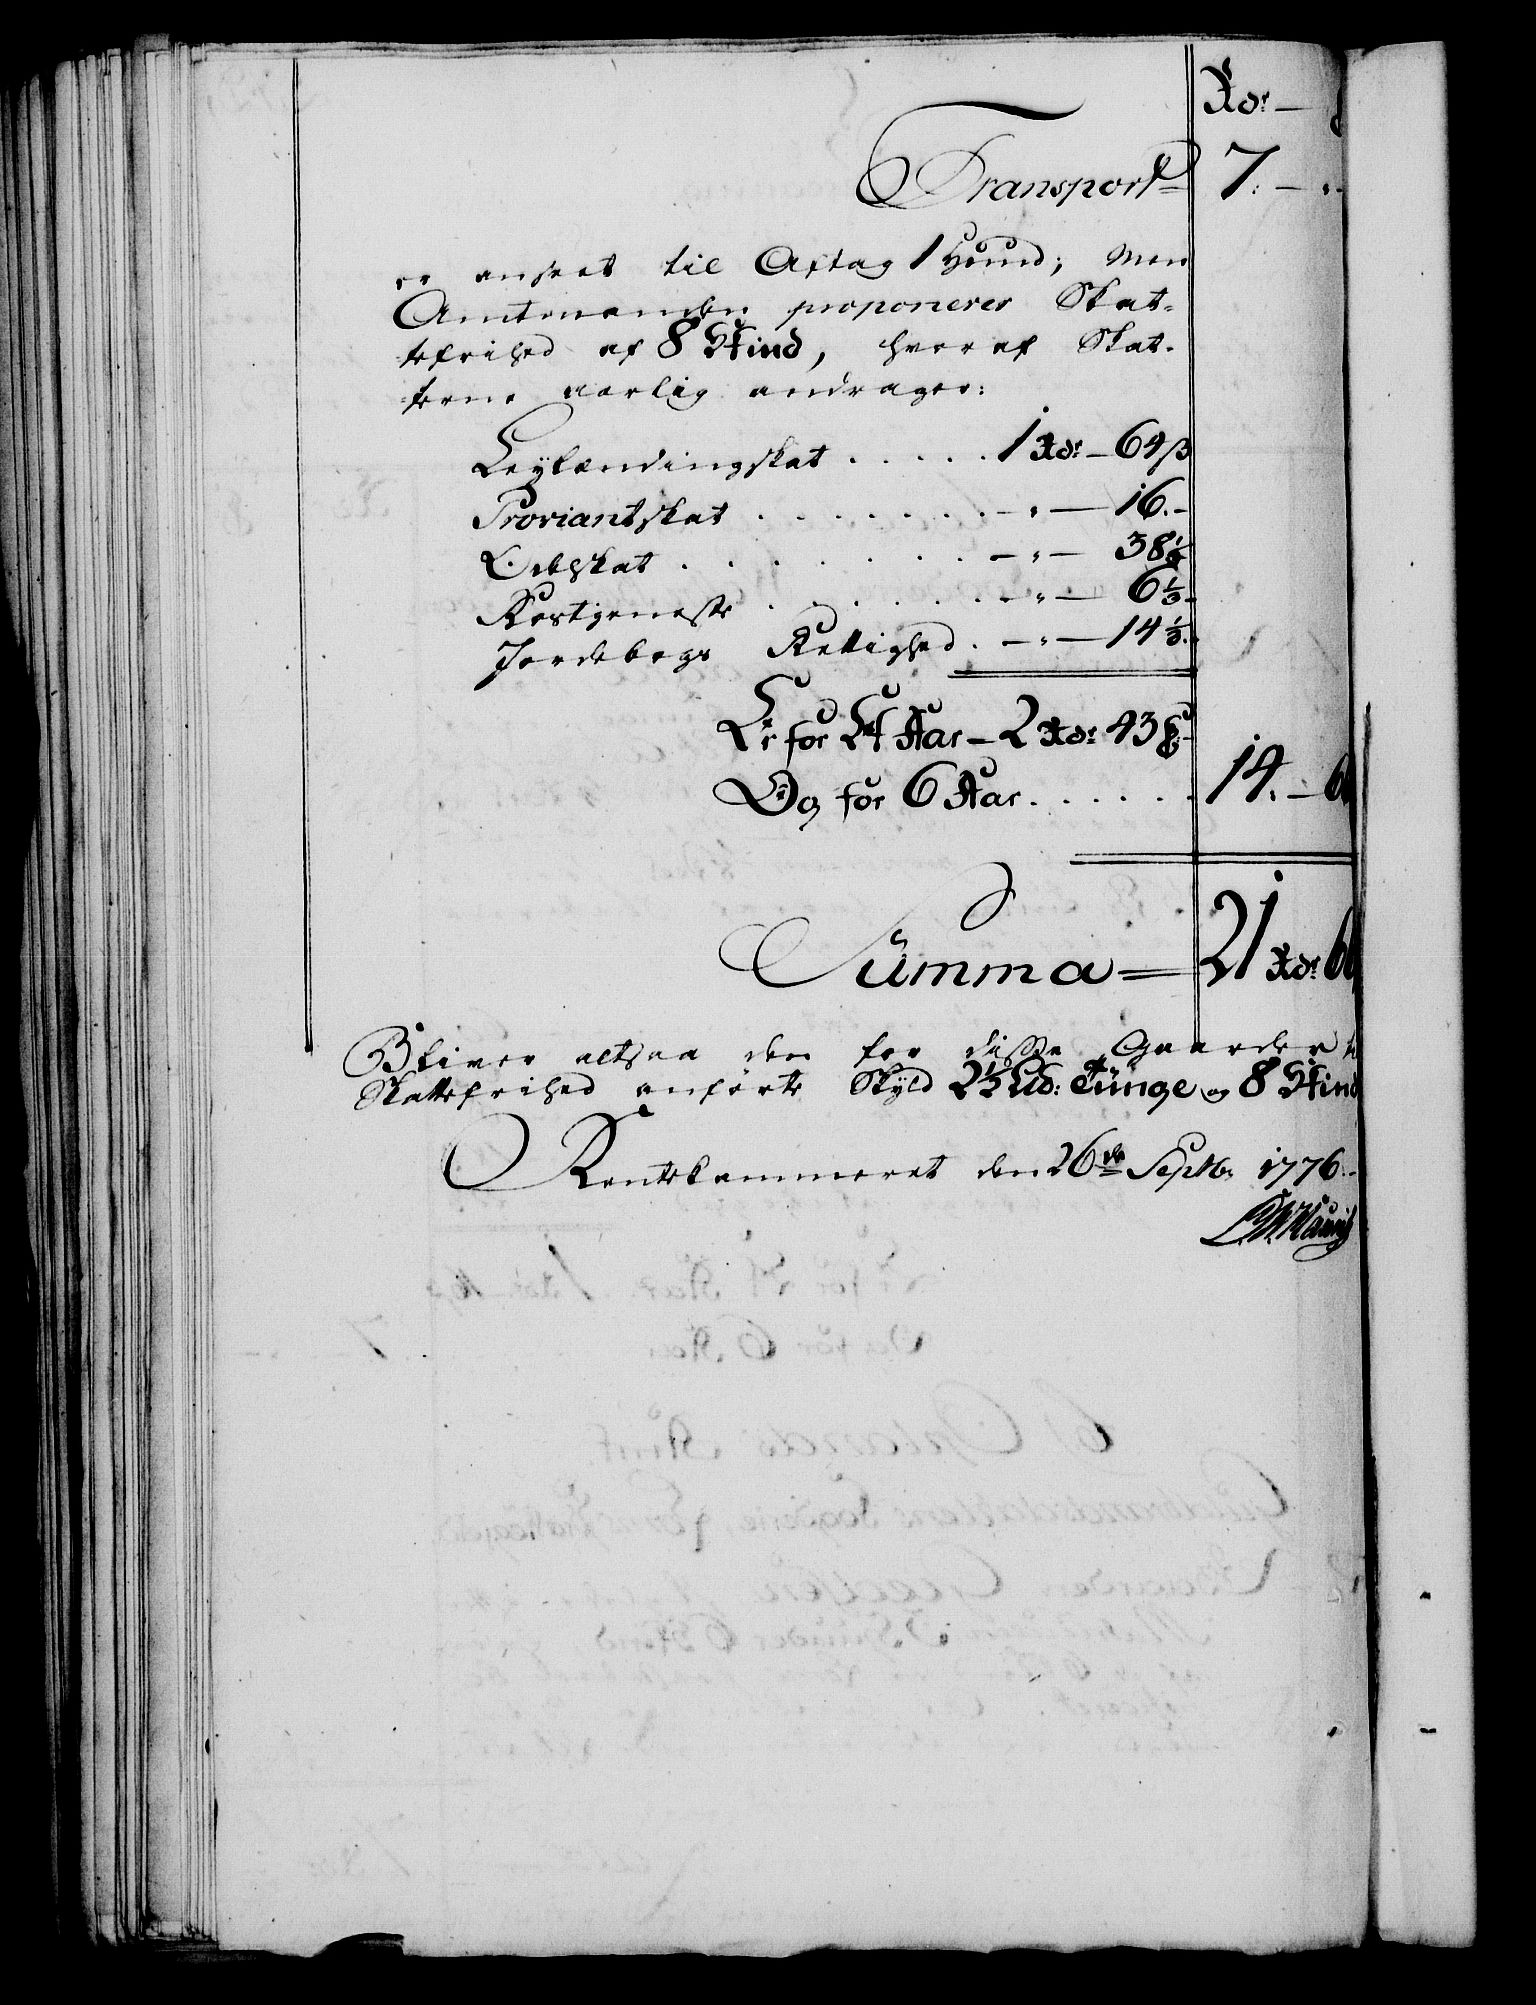 Rdr —
Transport 7. — "
er ansat til Aftag 1 Hund; Men
Amtmanden proponerer Skat-
tefrihed af 8 Skind, hvoraf Skat-
terne aarlig andrager:
Leylændingskat . . . . . 1 Rdr — 64 ß
Proviantskat . . . . . . . — " — 16. —
Odelskat . . . . . . . . — " — 38 1/6
Rostjeneste . . . . . . . — " — 6 1/3
Jordebogs Rettighed . — " — 14 1/3
Er for Et Aar — 2 Rdr 43 5/6
Og for 6 Aar . . . . . . 14. —
Summa = 21 Rdr
Bliver altsaa den for disse Gaarder til
Skattefrihed anførte Skyld 2 1/3 Lßd: Tunge og 8 Skind
Rentekammeret den 26de Septbr 1776.